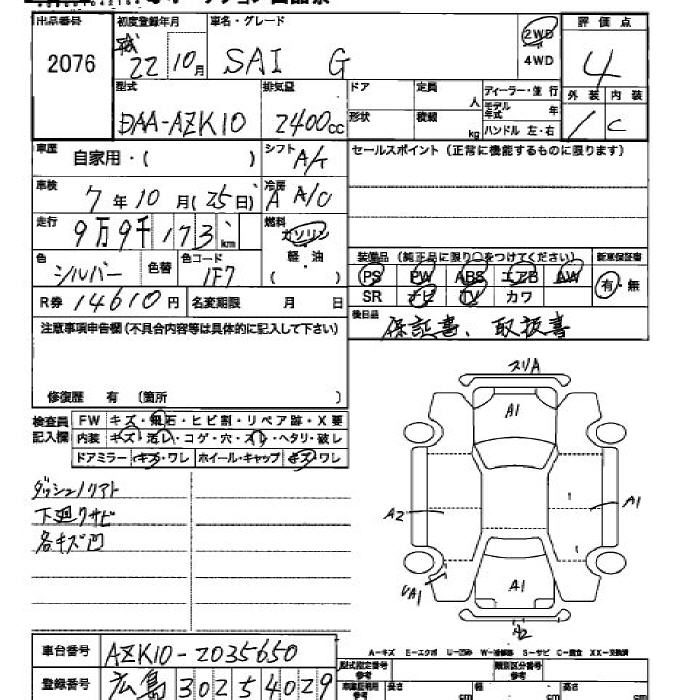 出品番号 初度登録年月 車名・グレード 評価点
2076 平成22年10月 SAI G 2WD 4WD 4
型式 排気量 ドア 定員 人 ディーラー・並行 外装 内装
DAA-AZK10 2400cc 形状 積載 kg モデル年式 年 ハンドル 左・右 / C
車歴 自家用・( ) シフト A/T セールスポイント(正常に機能するものに限ります)
車検 7年10月(25日) 冷房 A A/C
走行 9万9千173km 燃料 ガソリン
軽・油
( )
色 シルバー 色替 色コード 1F7
装備品(純正品に限り○をつけてください) 新車保証書
PS PW ABS エアB AW 有・無
SR ナビ TV カワ
R券 14610円 名変期限 月 日
後日品 保証書、取扱書
注意事項申告欄(不具合内容等は具体的に記入して下さい)
修復歴 有 (箇所 )
検査員記入欄 FW キズ・飛石・ヒビ割・リペア跡・X要
内装 キズ・汚レ・コゲ・穴・スレ・ヘタリ・破レ
ドアミラー キズ・ワレ ホイール・キャップ キズ・ワレ
スリA
A1
A2
A1
A1
ダッシュノリアト
下廻りサビ
各キズ凹
A-キズ E-エクボ U-凹み W-補修跡 S-サビ C-腐食 XX-交換済
車台番号 AZK10-2035650
登録番号 広島 302 5 4029
型式指定番号 参考 類別区分番号 参考
長さ cm 幅 cm 高さ cm